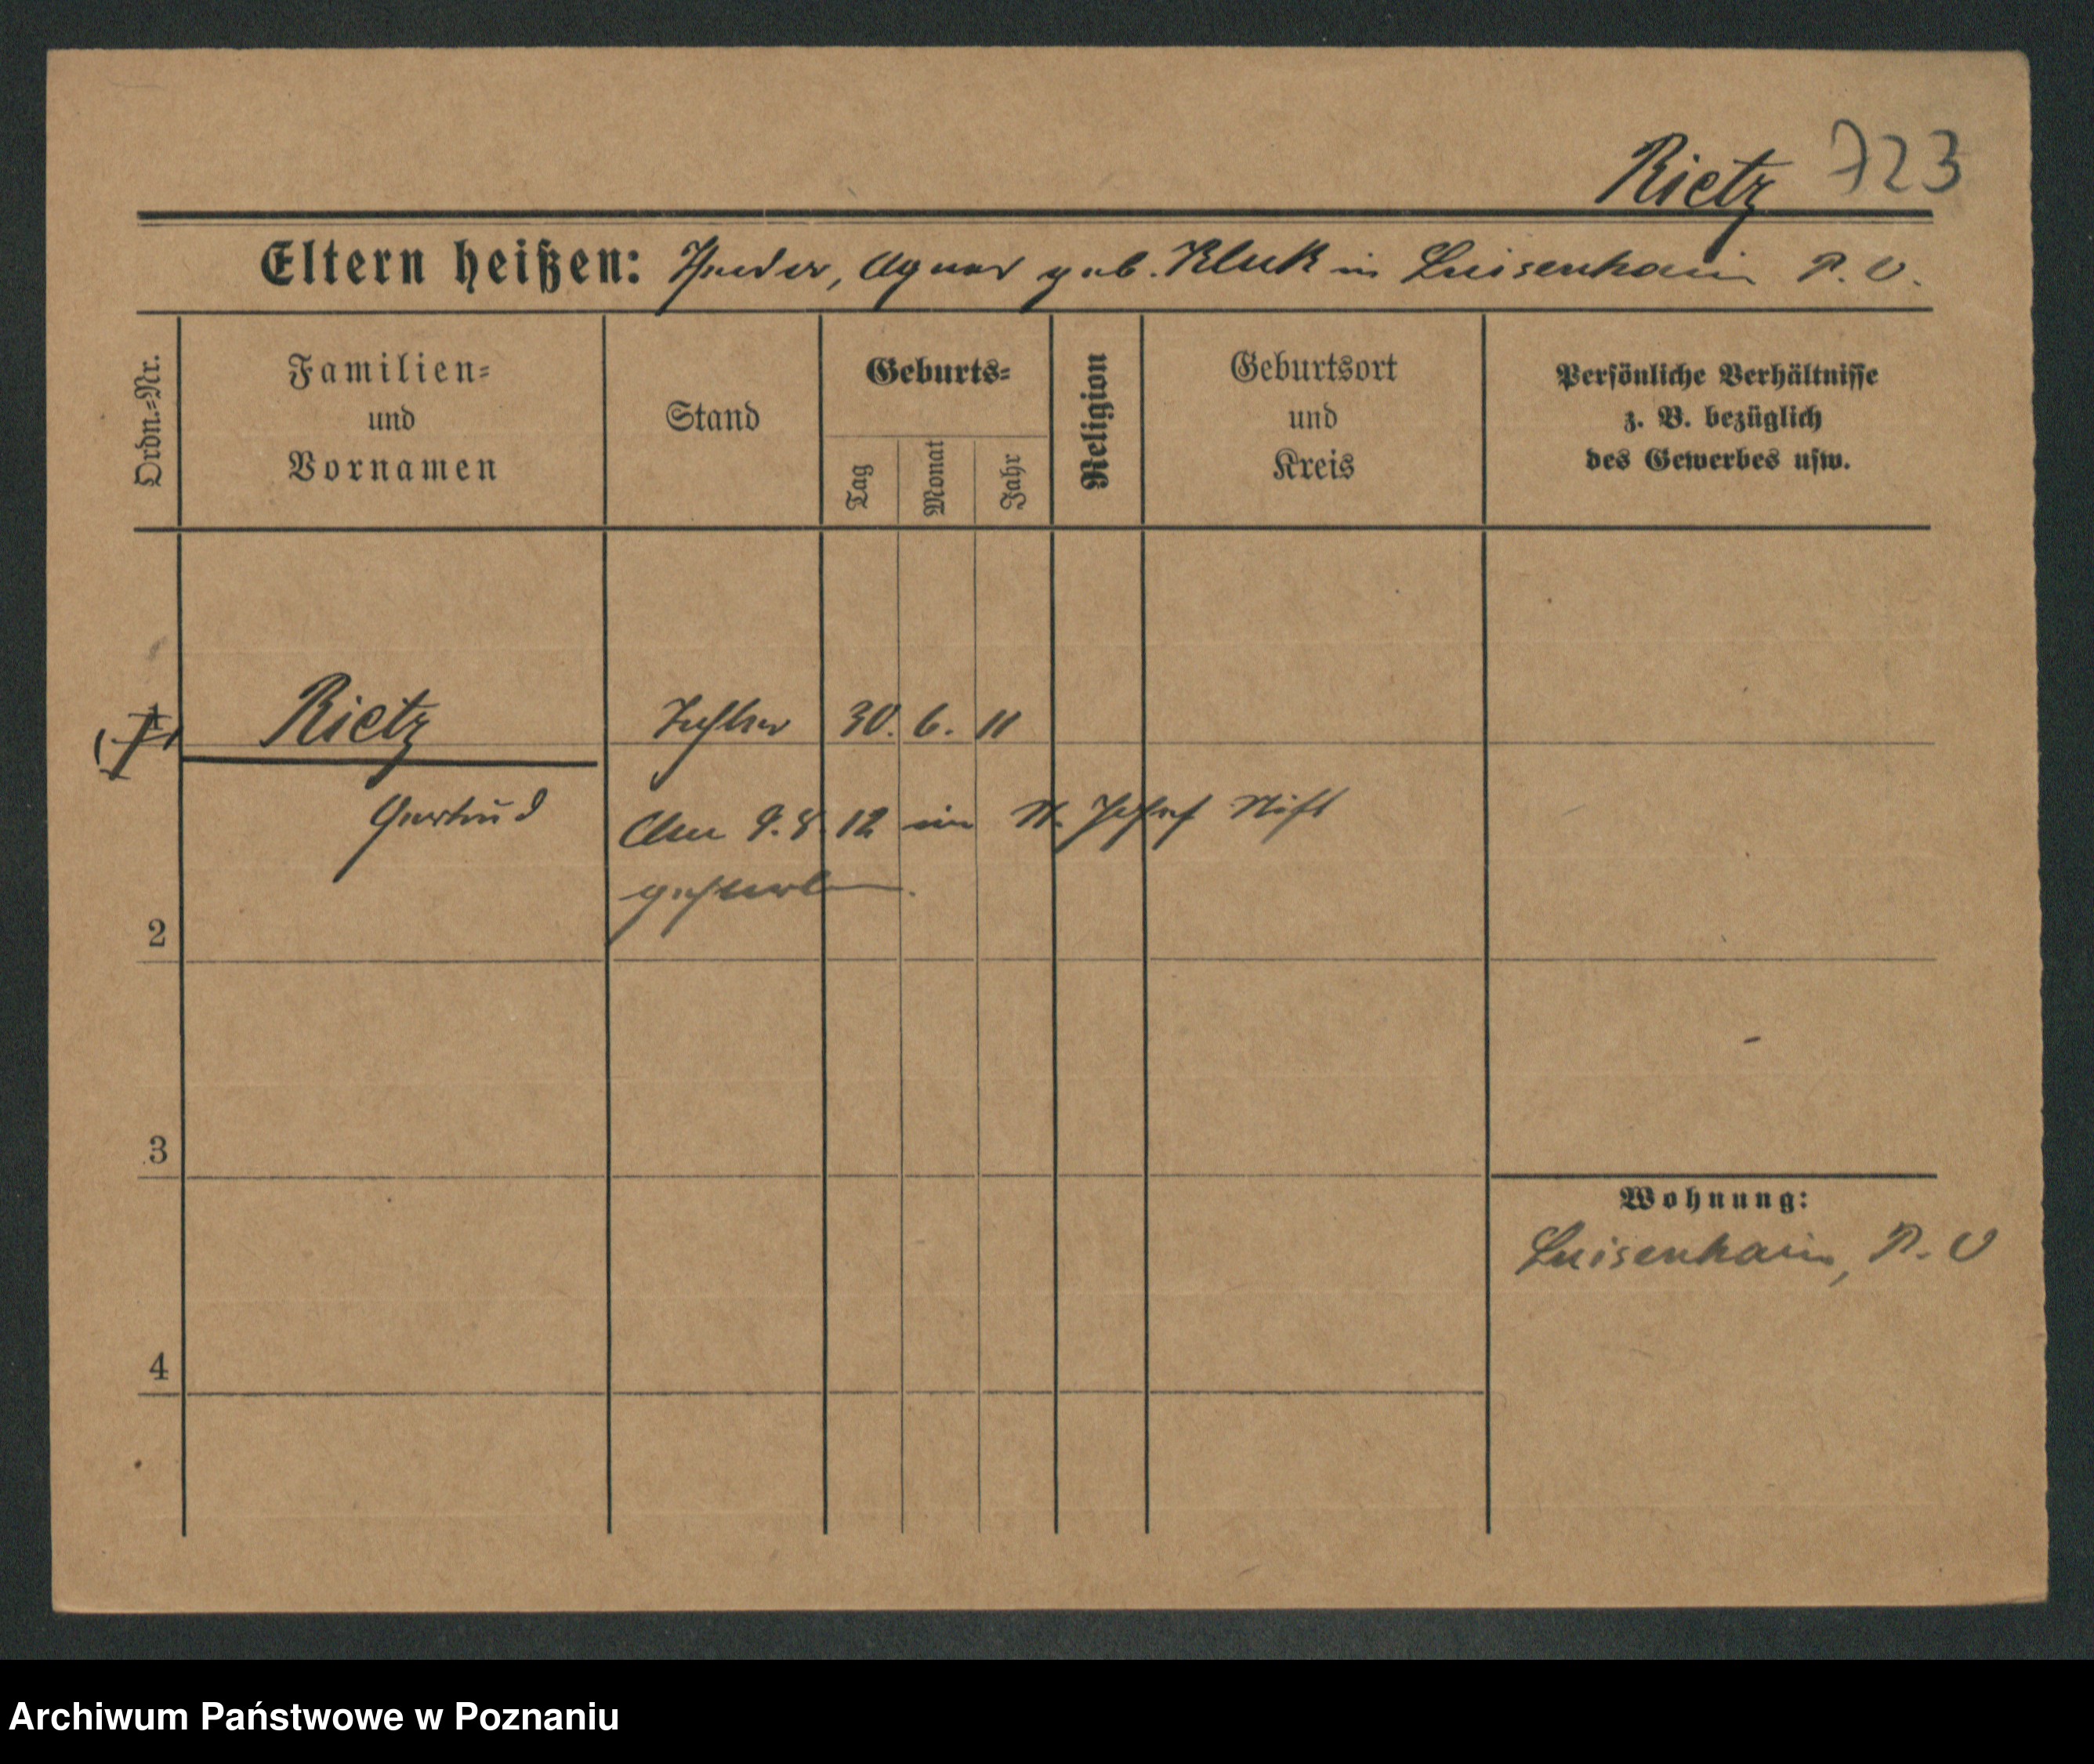 Rietz 723
Eltern heißen: Theodor, Agnes geb. Kluk in Luisenhain P. O.
Ordn.-Nr.
Familien-
und
Vornamen
Stand
Geburts-
Tag
Monat
Jahr
Religion
Geburtsort
und
Kreis
Persönliche Verhältnisse
z. B. bezüglich
des Gewerbes usw.
1 Rietz Tochter 30. 6. 11
Gertrud
Am 9. 8. 12 im St. Josef Stift
gestorben.
2
3
4
Wohnung:
Luisenhain, P. O
Archiwum Państwowe w Poznaniu